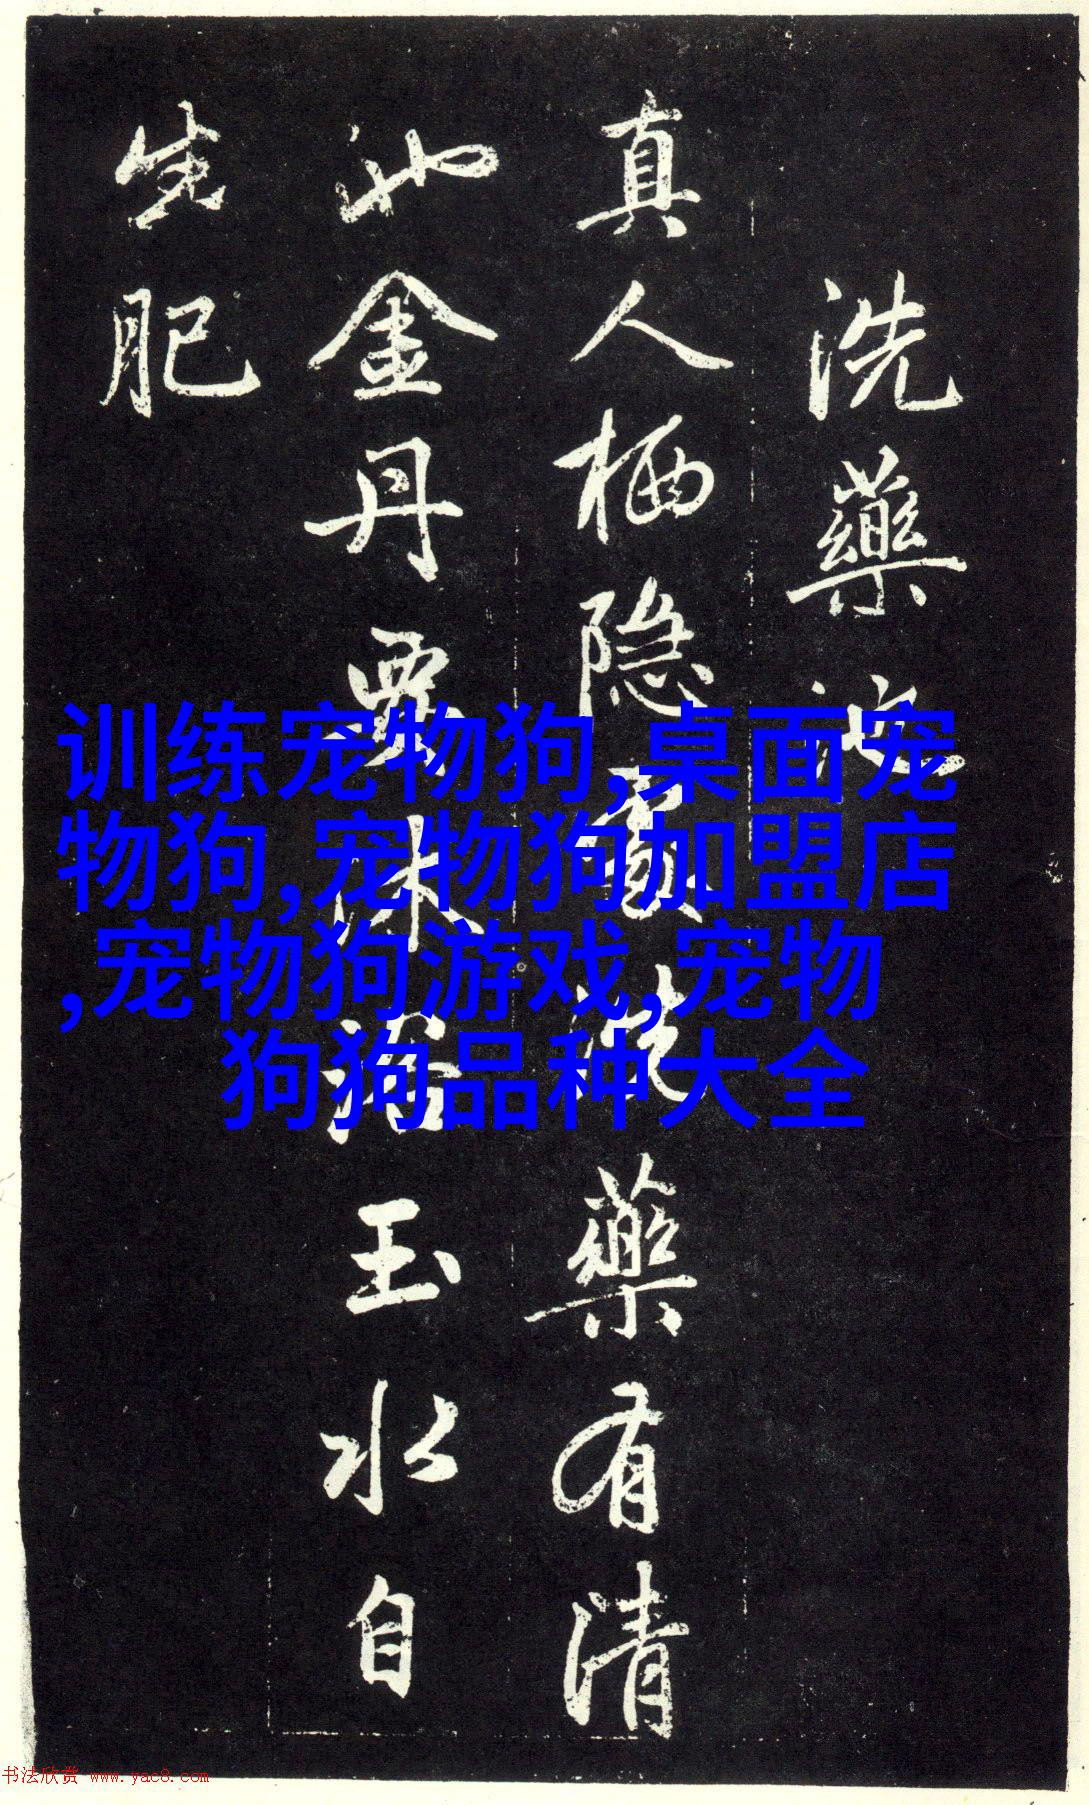 洗藥池
真人栖隐處洗藥有清
池金丹要沐浴玉水自
生肥
训练宠物狗,桌面宠
物狗,宠物狗加盟店
,宠物狗游戏,宠物
狗狗品种大全
书法欣赏 www.yac8.com